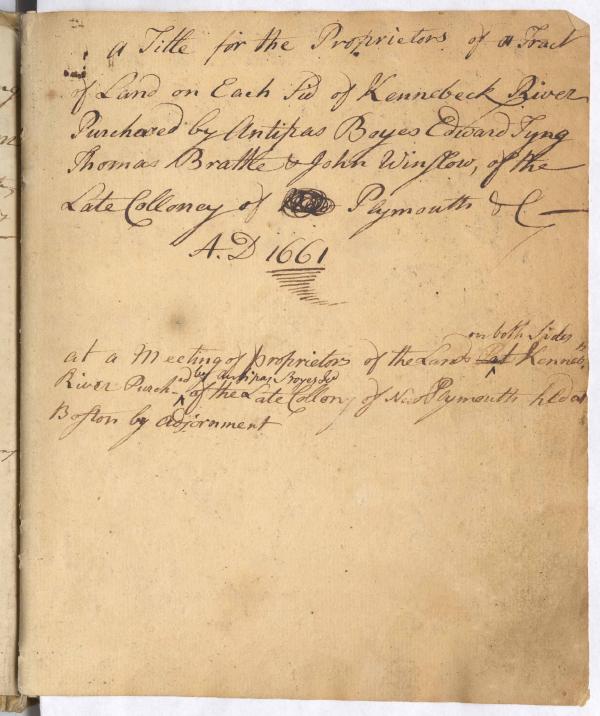 a Title for the Proprietors of a Tract
of Land on Each Sid of Kennebeck River
Purchased by Antipas Boyes Edward Tyng
Thomas Brattle & John Winslow, of the
Late Colloney of Plymouth &C —
A.D 1661
on both Sides
at a Meeting of proprietors of the Lands at Kenneb
by antipas Boyes
River Purchd of the Late Collony of New Plymouth held at
Boston by adjornment